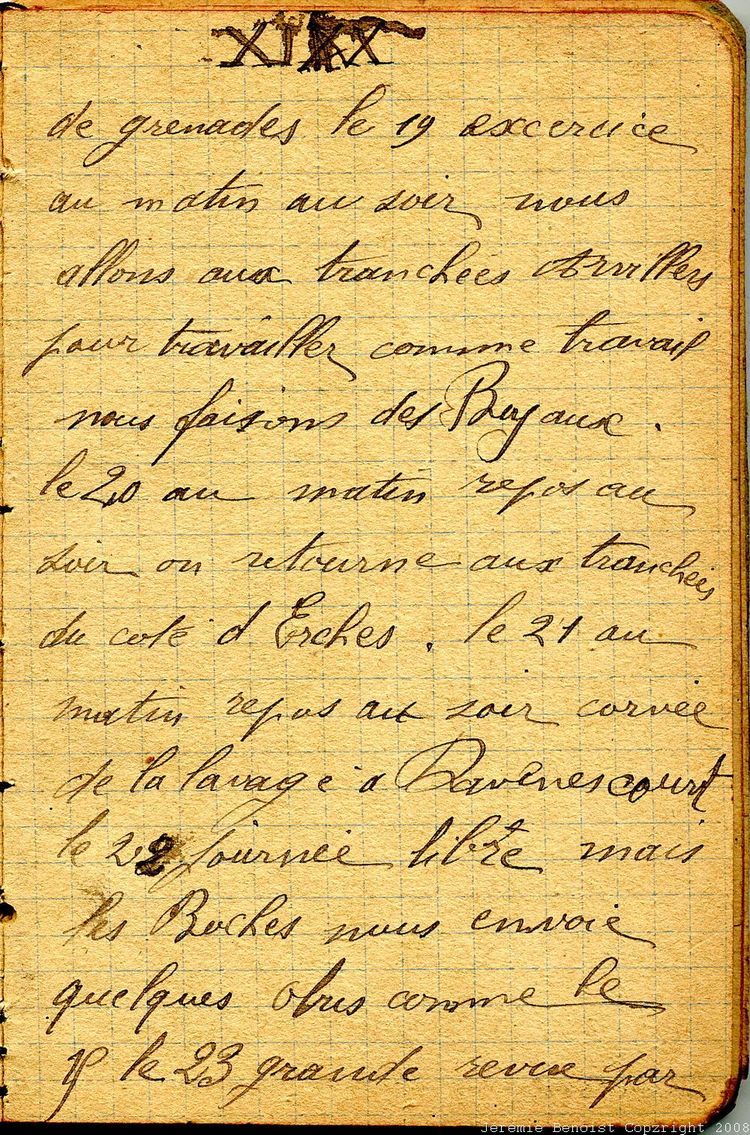 XIXX
de grenades le 19 excercice
au matin au soir nous
allons aux tranchées Arvillers
pour travailler comme travail
nous faisions des Boyaux.
le 20 au matin repos au
soir on retourne aux tranchées
du coté d'Erches. le 21 au
matin repos au soir corvée
de la lavage a Davenescourt
le 22 journée libre mais
les Boches nous envoie
quelques obus comme le
le 23 grande revue par
Jeremie Benoist Copzright 2008